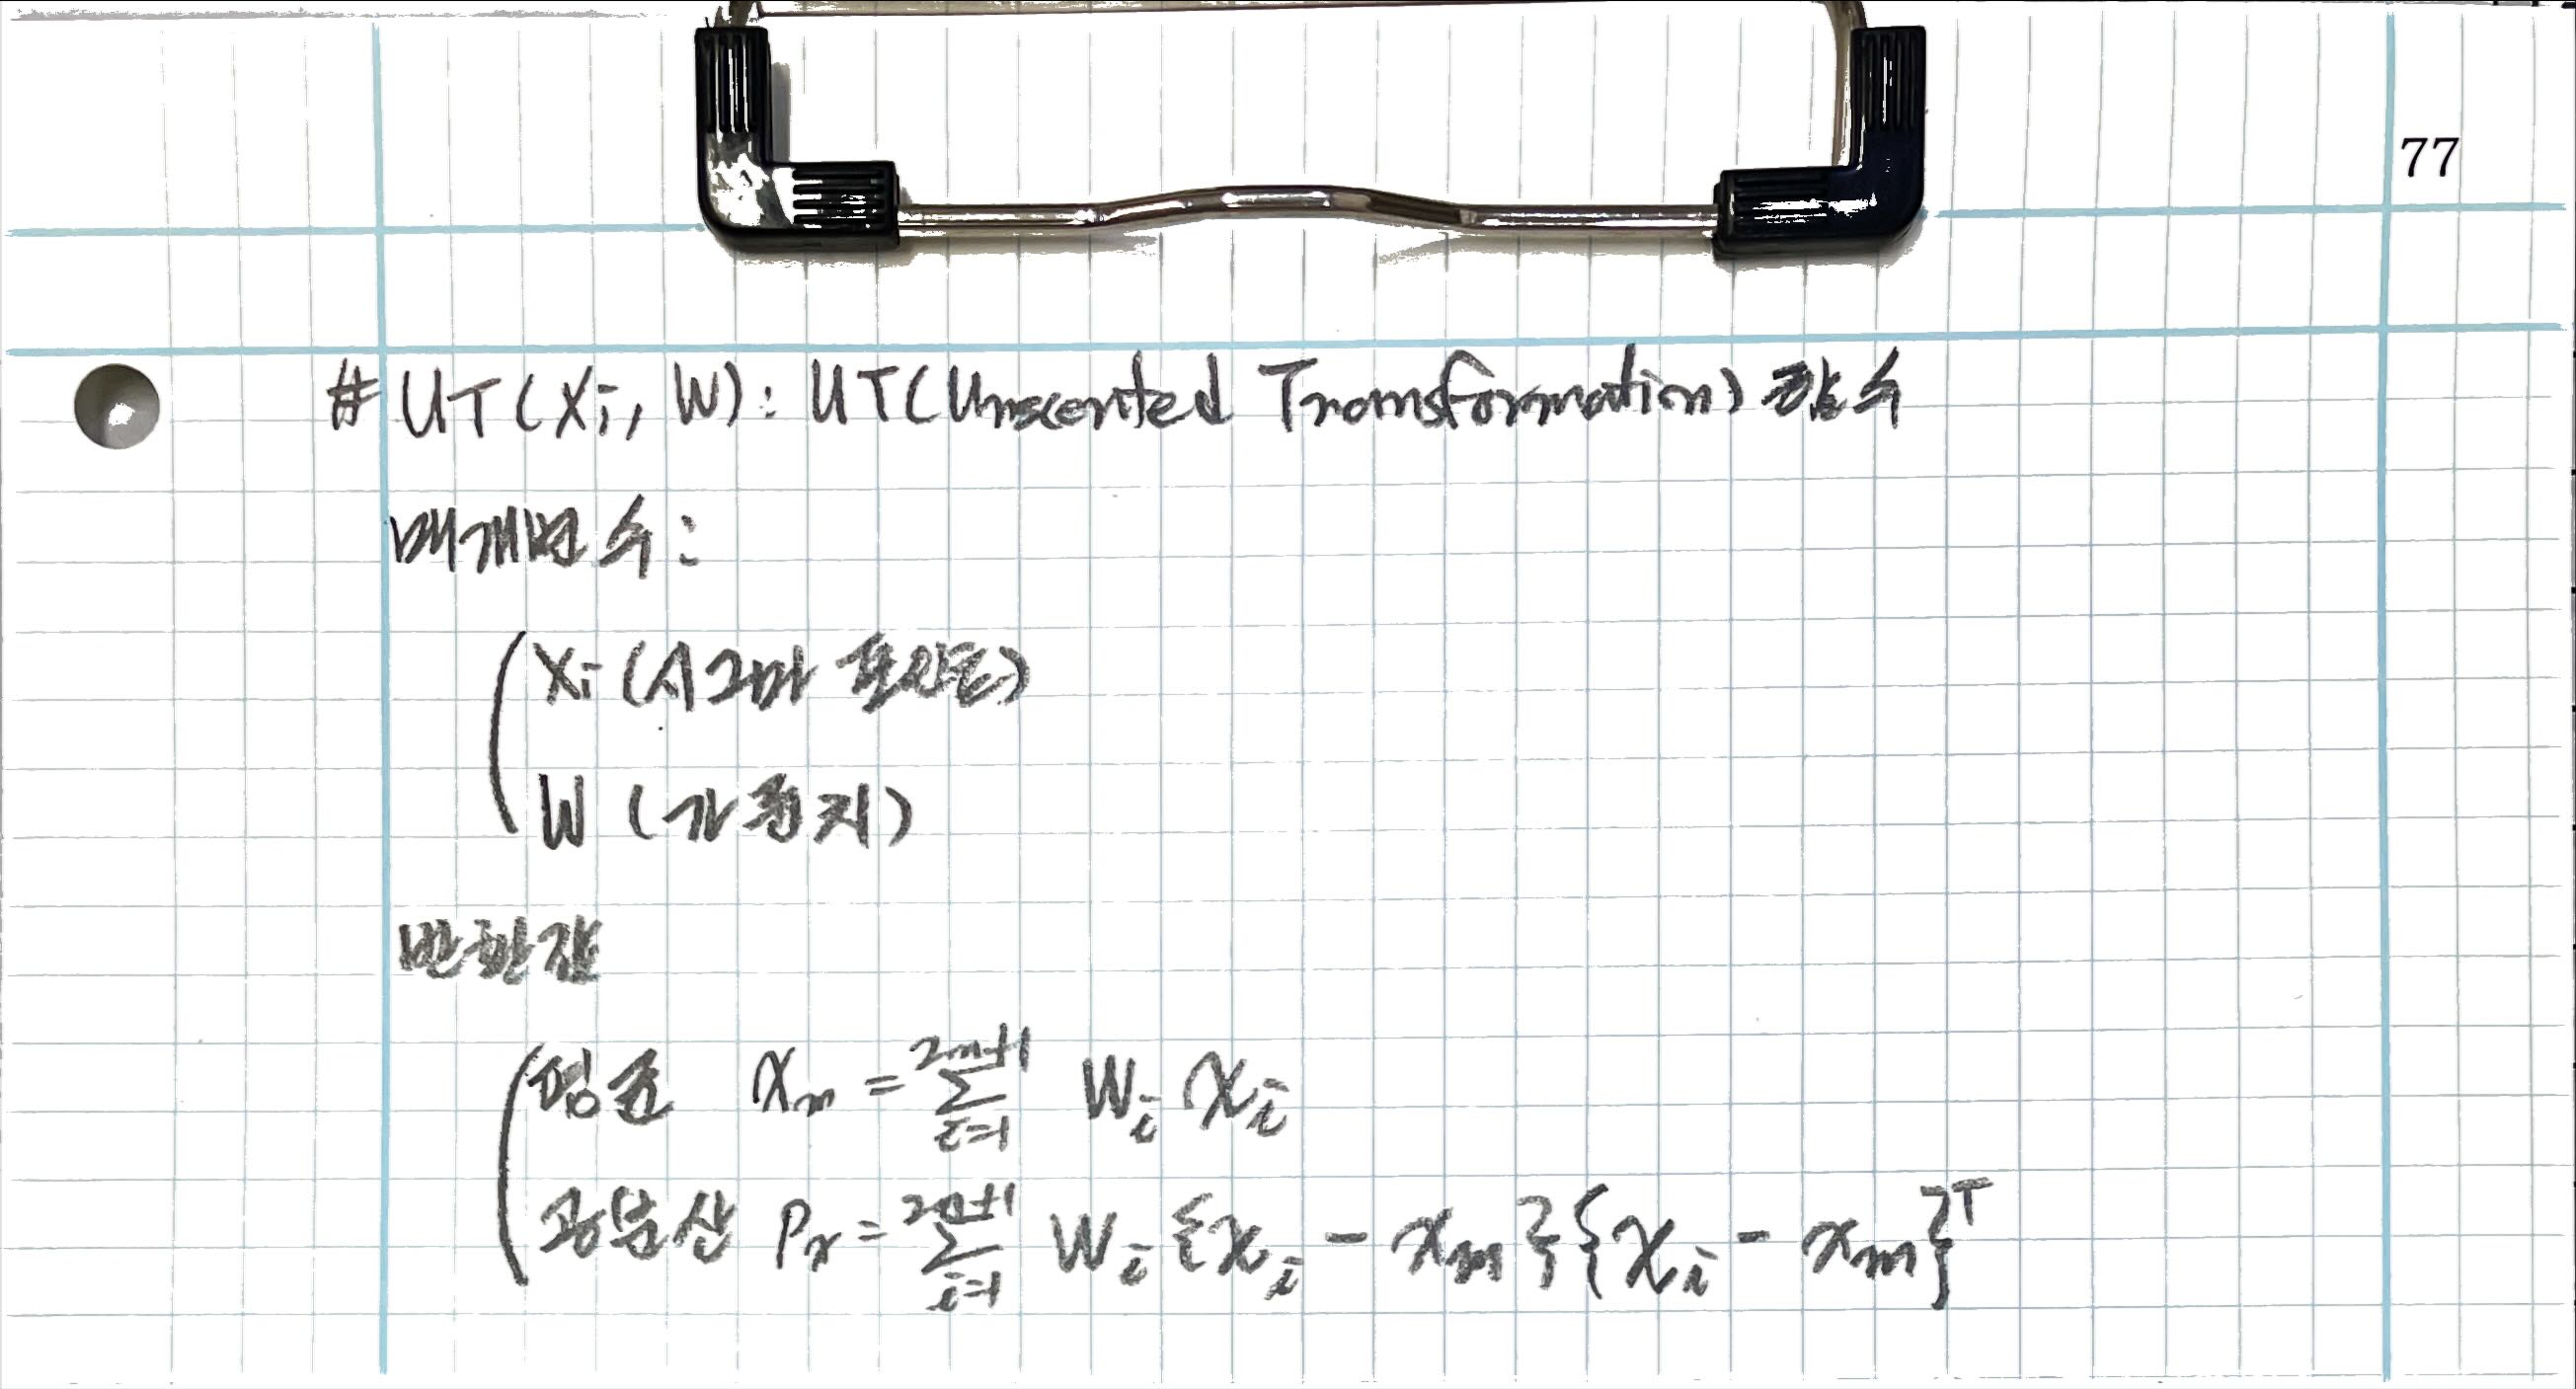 77
# UT(Xi, W): UT(Unscented Transformation) 함수
매개변수:
Xi (시그마 포인트)
W (가중치)
반환값
평균 χm = Σ_{i=1}^{2n+1} Wi χi
공분산 Px = Σ_{i=1}^{2n+1} Wi {χi - xm}{χi - xm}^T